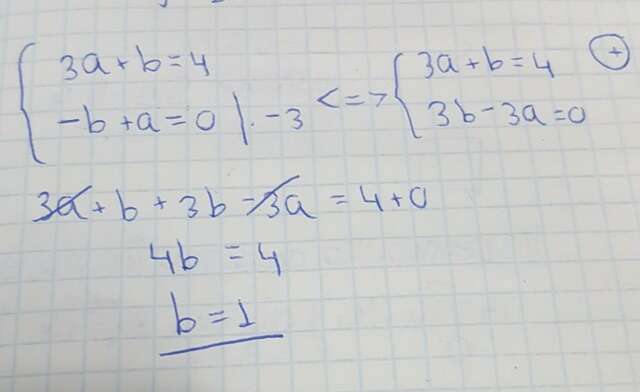 3a + b = 4
-b + a = 0 | · -3 <=> 3a + b = 4 (+)
3b - 3a = 0
3a + b + 3b - 3a = 4 + 0
4b = 4
b = 1